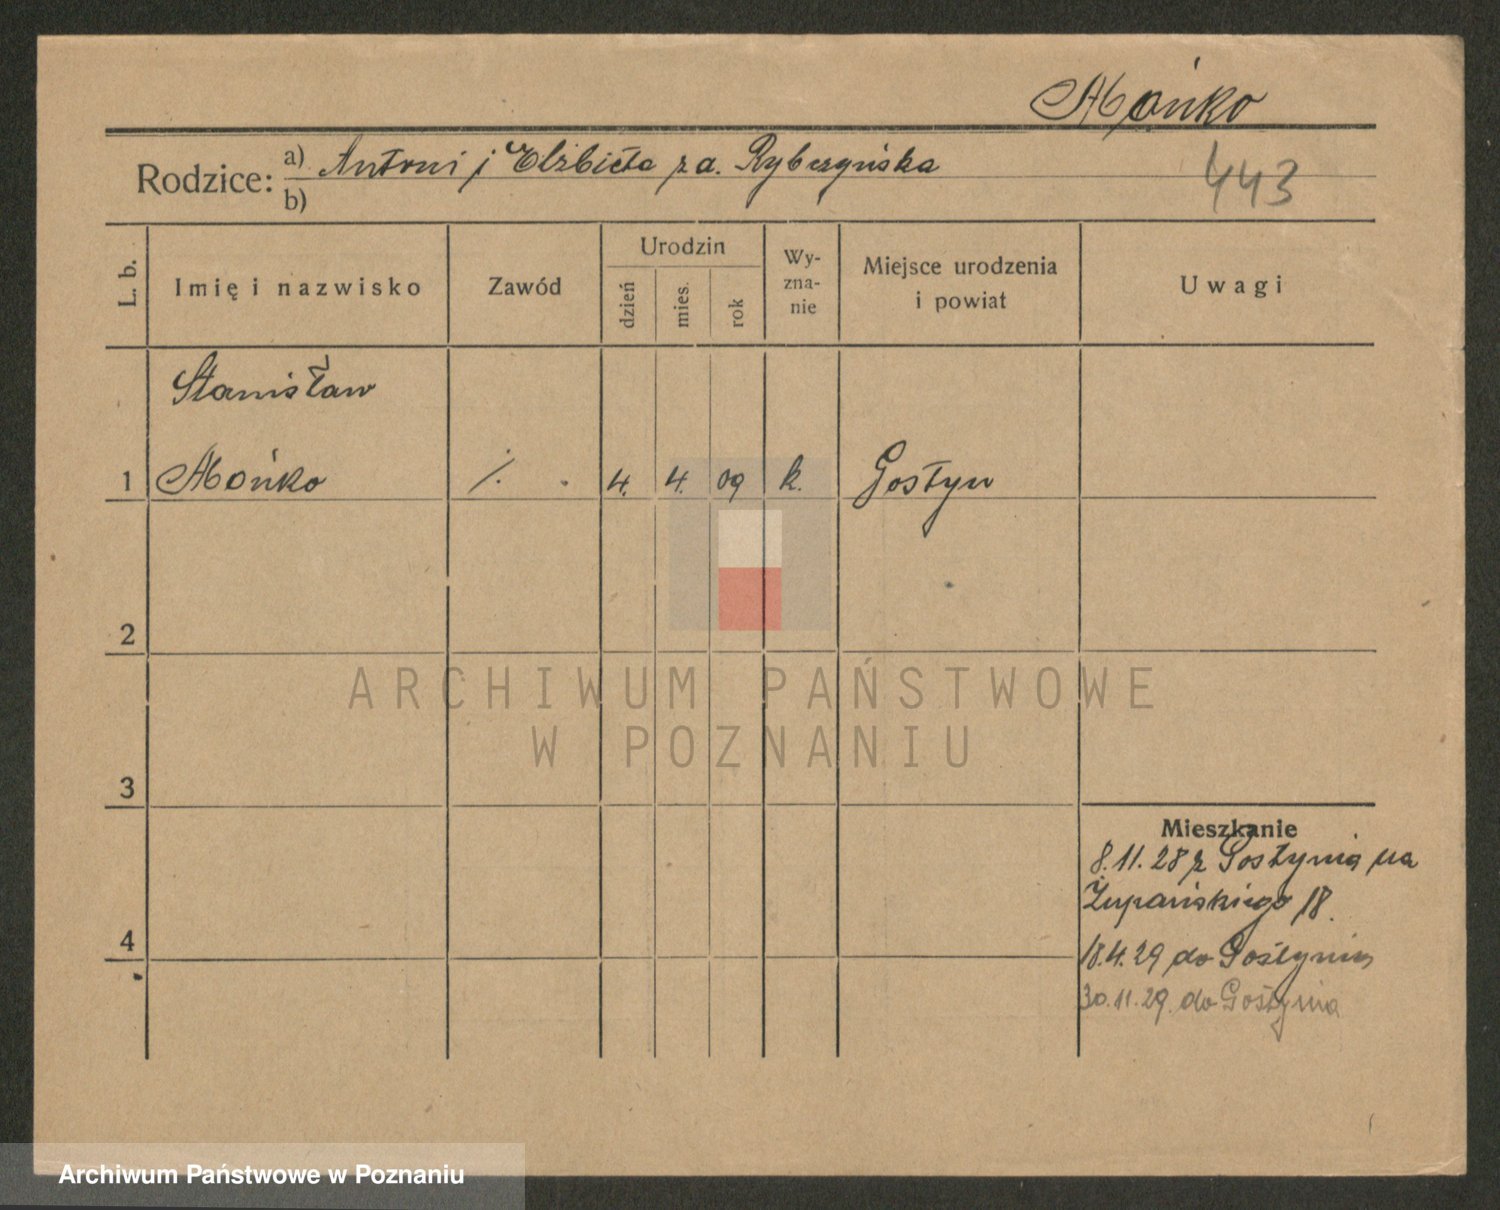 Mońko
Rodzice: a) Antoni i Elżbieta z d. Rybczyńska
b)
443
L. b.
Imię i nazwisko
Zawód
Urodzin
dzień
mies.
rok
Wy-
zna-
nie
Miejsce urodzenia
i powiat
Uwagi
Stanisław
1 Mońko ./. 4. 4. 09 k. Gostyń
2
3
4
Mieszkanie
8.11.28 z Gostynia na
Żupańskiego 18.
18.4.29 do Gostynia
30.11.29. do Gostynia
ARCHIWUM PAŃSTWOWE
W POZNANIU
Archiwum Państwowe w Poznaniu